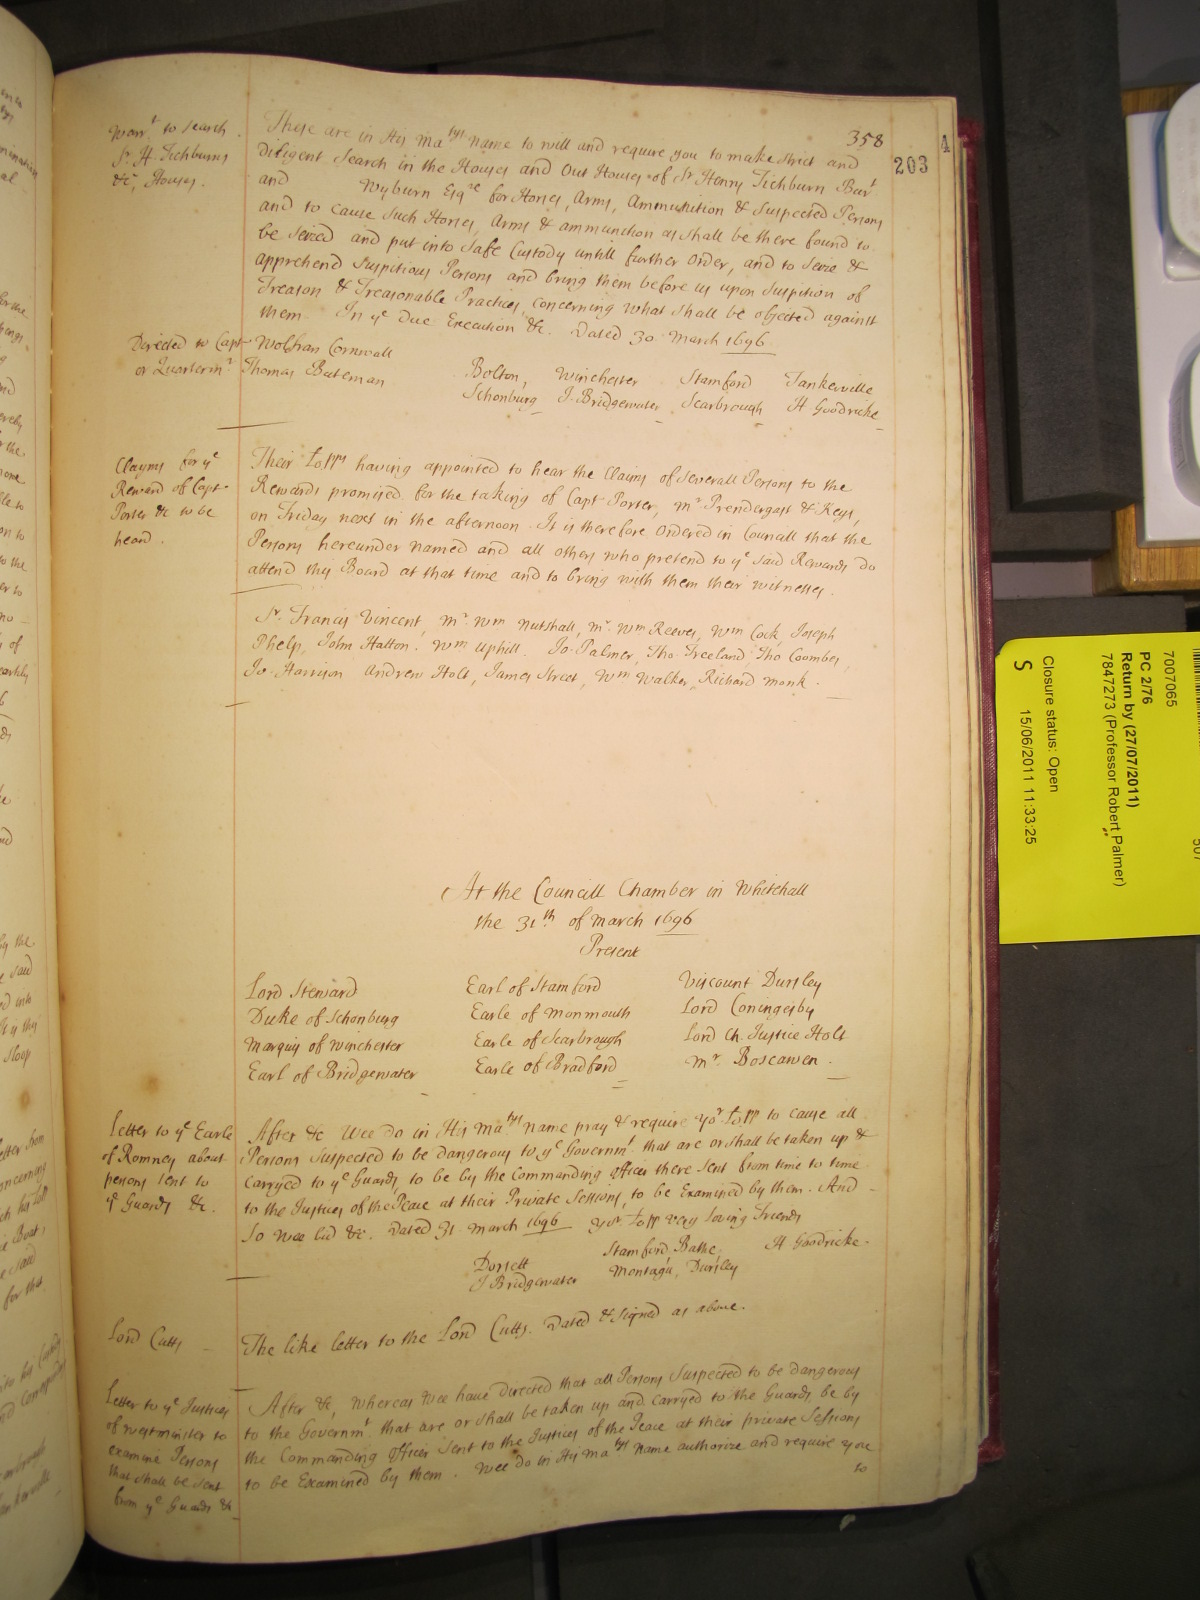 358
203
A
Warr.t to search
Sr. H. Tichburns
&c, Houses.
These are in His Ma:tys Name to will and require you to make strict and
diligent Search in the Houses and Out Houses of Sr Henry Tichburn Bar.t
and Wyburn Esq.re for Horses, Arms, Ammunition & Suspected Persons
and to cause such Horses, Arms & ammunition as shall be there found to
be Seized and put into Safe Custody untill further Order, and to Seize &
apprehend Suspitious Persons and bring them before us upon Suspition of
Treason & Treasonable Practices, concerning what shall be objected against
them. In ye Due Execution &c. Dated 30 March 1696.
Directed to Capt Wolfran Cornwall
or Quarterm.r Thomas Bateman
Bolton, Winchester Stamford Tankerville
Schonburg J. Bridgewater Scarbrough H Goodricke
Clayms for ye
Reward of Capt
Porter &c to be
heard.
Their Lo.pps having appointed to hear the Claims of Severall Persons to the
Rewards promised for the taking of Capt Porter, mr. Prendergast & Keys,
on Friday next in the afternoon. It is therefore Ordered in Councill that the
Persons hereunder Named and all others who pretend to ye said Rewards do
attend this Board at that time and to bring with them their witnesses.
Sr. Francis Vincent, mr. Wm Nutshall, mr. Wm Reeves, Wm Cock, Joseph
Phelp, John Hatton, Wm Uphill. Jo. Palmer, Tho. Freeland, Tho Coombes,
Jo. Harrison Andrew Holt, James Street, Wm Walker, Richard Monk.
At the Councill Chamber in Whitehall
the 31.th of March 1696
Present
Lord Steward Earl of Stamford Viscount Dursley
Duke of Schonburg Earle of Monmouth Lord Coningesby
Marquis of Winchester Earle of Scarbrough Lord Ch. Justice Holt
Earl of Bridgewater Earle of Bradford mr. Boscawen.
Letter to ye Earle
of Romney about
persons sent to
ye Guards &c.
After &c Wee do in His Ma:tys Name pray & require yor Lo.pp to cause all
Persons Suspected to be dangerous to ye Governm.t that are or shall be taken up &
Carryed to ye Guards, to be by the Commanding Officer there Sent from time to time
to the Justices of the Peace at their Private Sessions, to be Examined by them. And
So Wee bid &c. Dated 31 March 1696 Yor Lo.pps very loving Friends
Dorsett Stamford, Bathe, H Goodricke
J Bridgewater Montagu, Dursley
Lord Cutts
The like letter to the Lord Cutts. Dated & Signed as above.
Letter to ye Justices
of Westminster to
examine Persons
that shall be sent
from ye Guards &c
After &c, Whereas Wee have Directed that all Persons Suspected to be dangerous
to the Governm.t that are or shall be taken up and carryed to the Guards, be by
the Commanding Officer Sent to the Justices of the Peace at their private Sessions
to be Examined by them. Wee do in His Ma:tys Name authorize and require you
to
7007065
PC 2/76
Return by (27/07/2011)
7847273 (Professor Robert Palmer)
Closure status: Open
S 15/06/2011 11:33:25